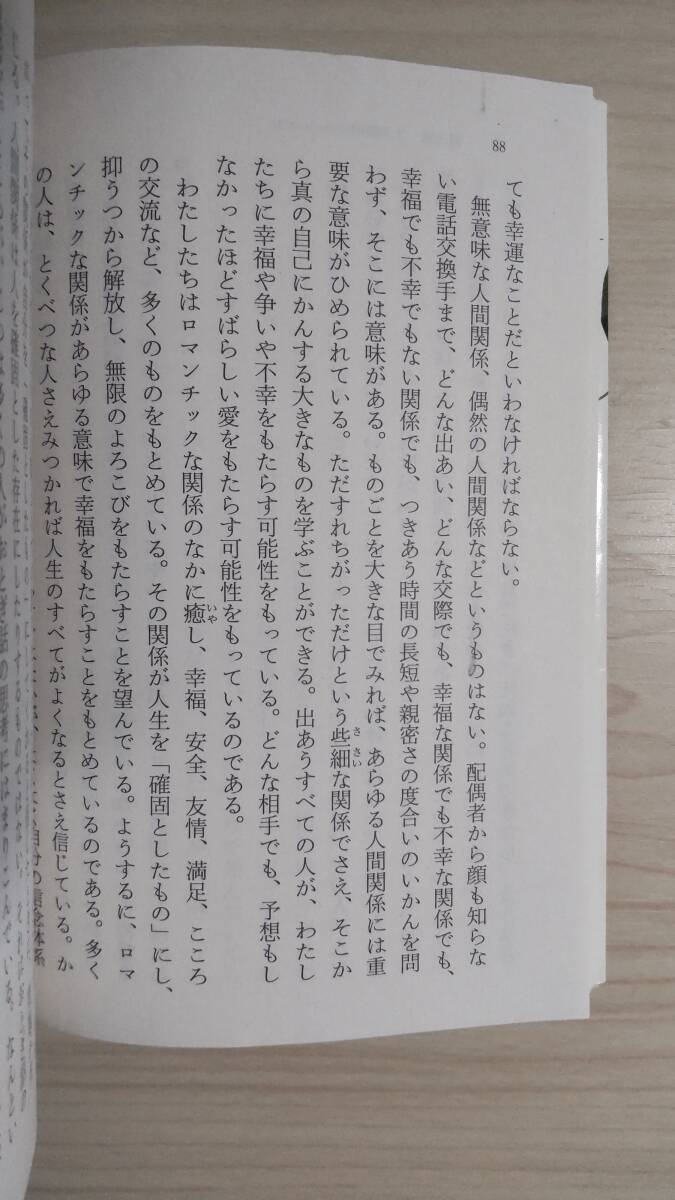 88
ても幸運なことだといわなければならない。
無意味な人間関係、偶然の人間関係などというものはない。配偶者から顔も知らな
い電話交換手まで、どんな出あい、どんな交際でも、幸福な関係でも不幸な関係でも、
幸福でも不幸でもない関係でも、つきあう時間の長短や親密さの度合いのいかんを問
わず、そこには意味がある。ものごとを大きな目でみれば、あらゆる人間関係には重
要な意味がひめられている。ただすれちがっただけという些細な関係でさえ、そこか
ら真の自己にかんする大きなものを学ぶことができる。出あうすべての人が、わたし
たちに幸福や争いや不幸をもたらす可能性をもっている。どんな相手でも、予想もし
なかったほどすばらしい愛をもたらす可能性をもっているのである。
わたしたちはロマンチックな関係のなかに癒し、幸福、安全、友情、満足、こころ
の交流など、多くのものをもとめている。その関係が人生を「確固としたもの」にし、
抑うつから解放し、無限のよろこびをもたらすことを望んでいる。ようするに、ロマ
ンチックな関係があらゆる意味で幸福をもたらすことをもとめているのである。多く
の人は、とくべつな人さえみつかれば人生のすべてがよくなるとさえ信じている。か